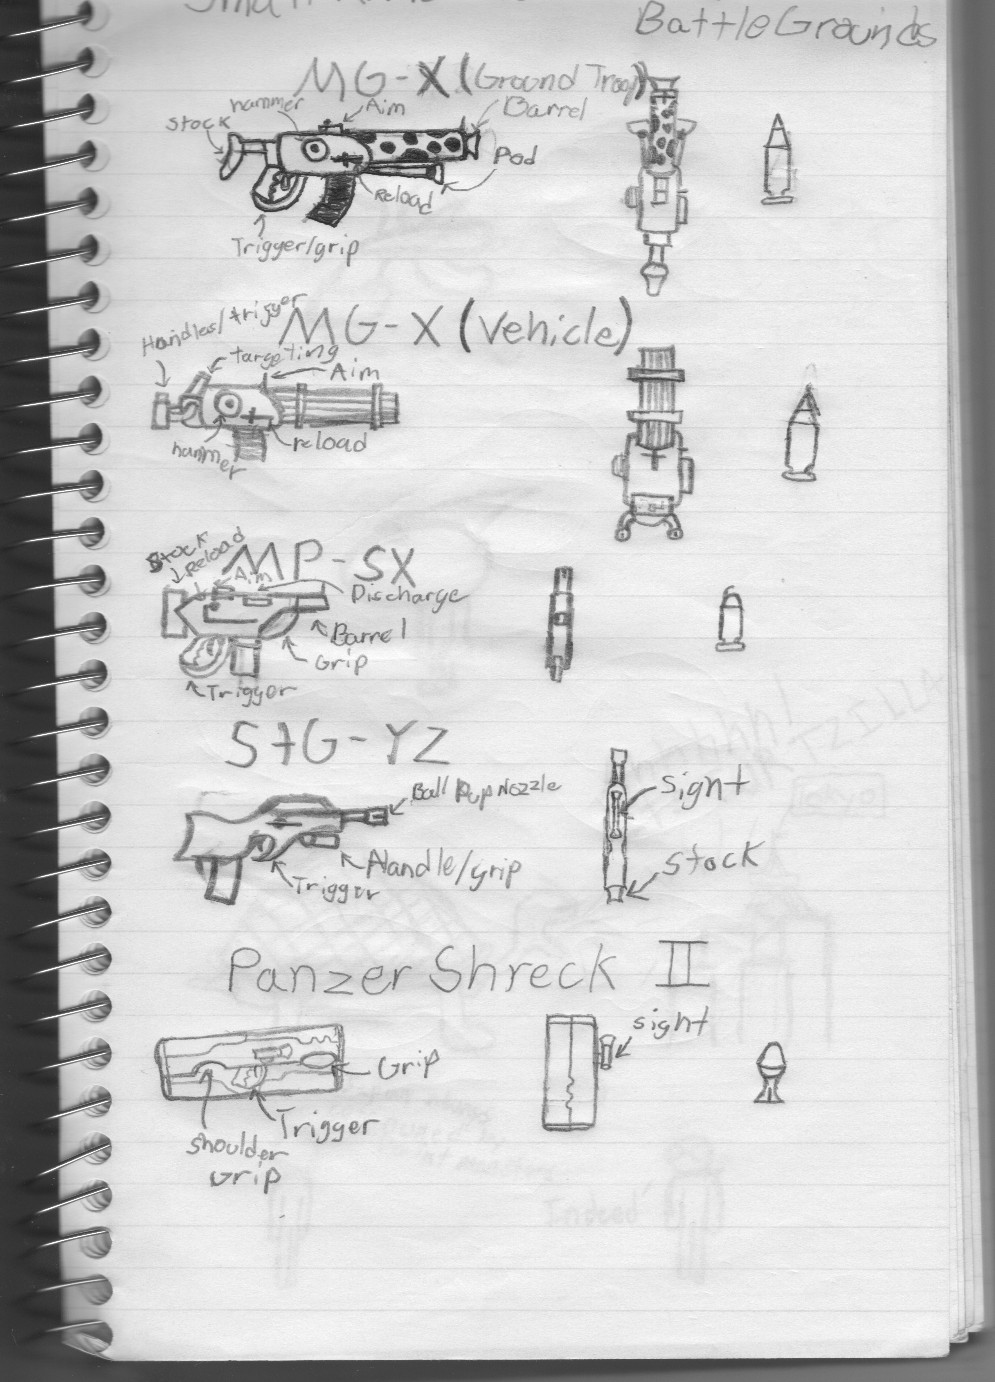 BattleGrounds
MG-X (Ground Troop)
hammer
Aim
Barrel
Stock
Pod
Reload
Trigger/grip
MG-X (Vehicle)
Handles/trigger
targeting
Aim
hammer
reload
MP-SX
Stock
Reload
Aim
Discharge
Barrel
Grip
Trigger
StG-YZ
Ball Pup Nozzle
sight
Handle/grip
Trigger
Stock
Panzer Shreck II
sight
Grip
Trigger
Shoulder
Grip
Indeed